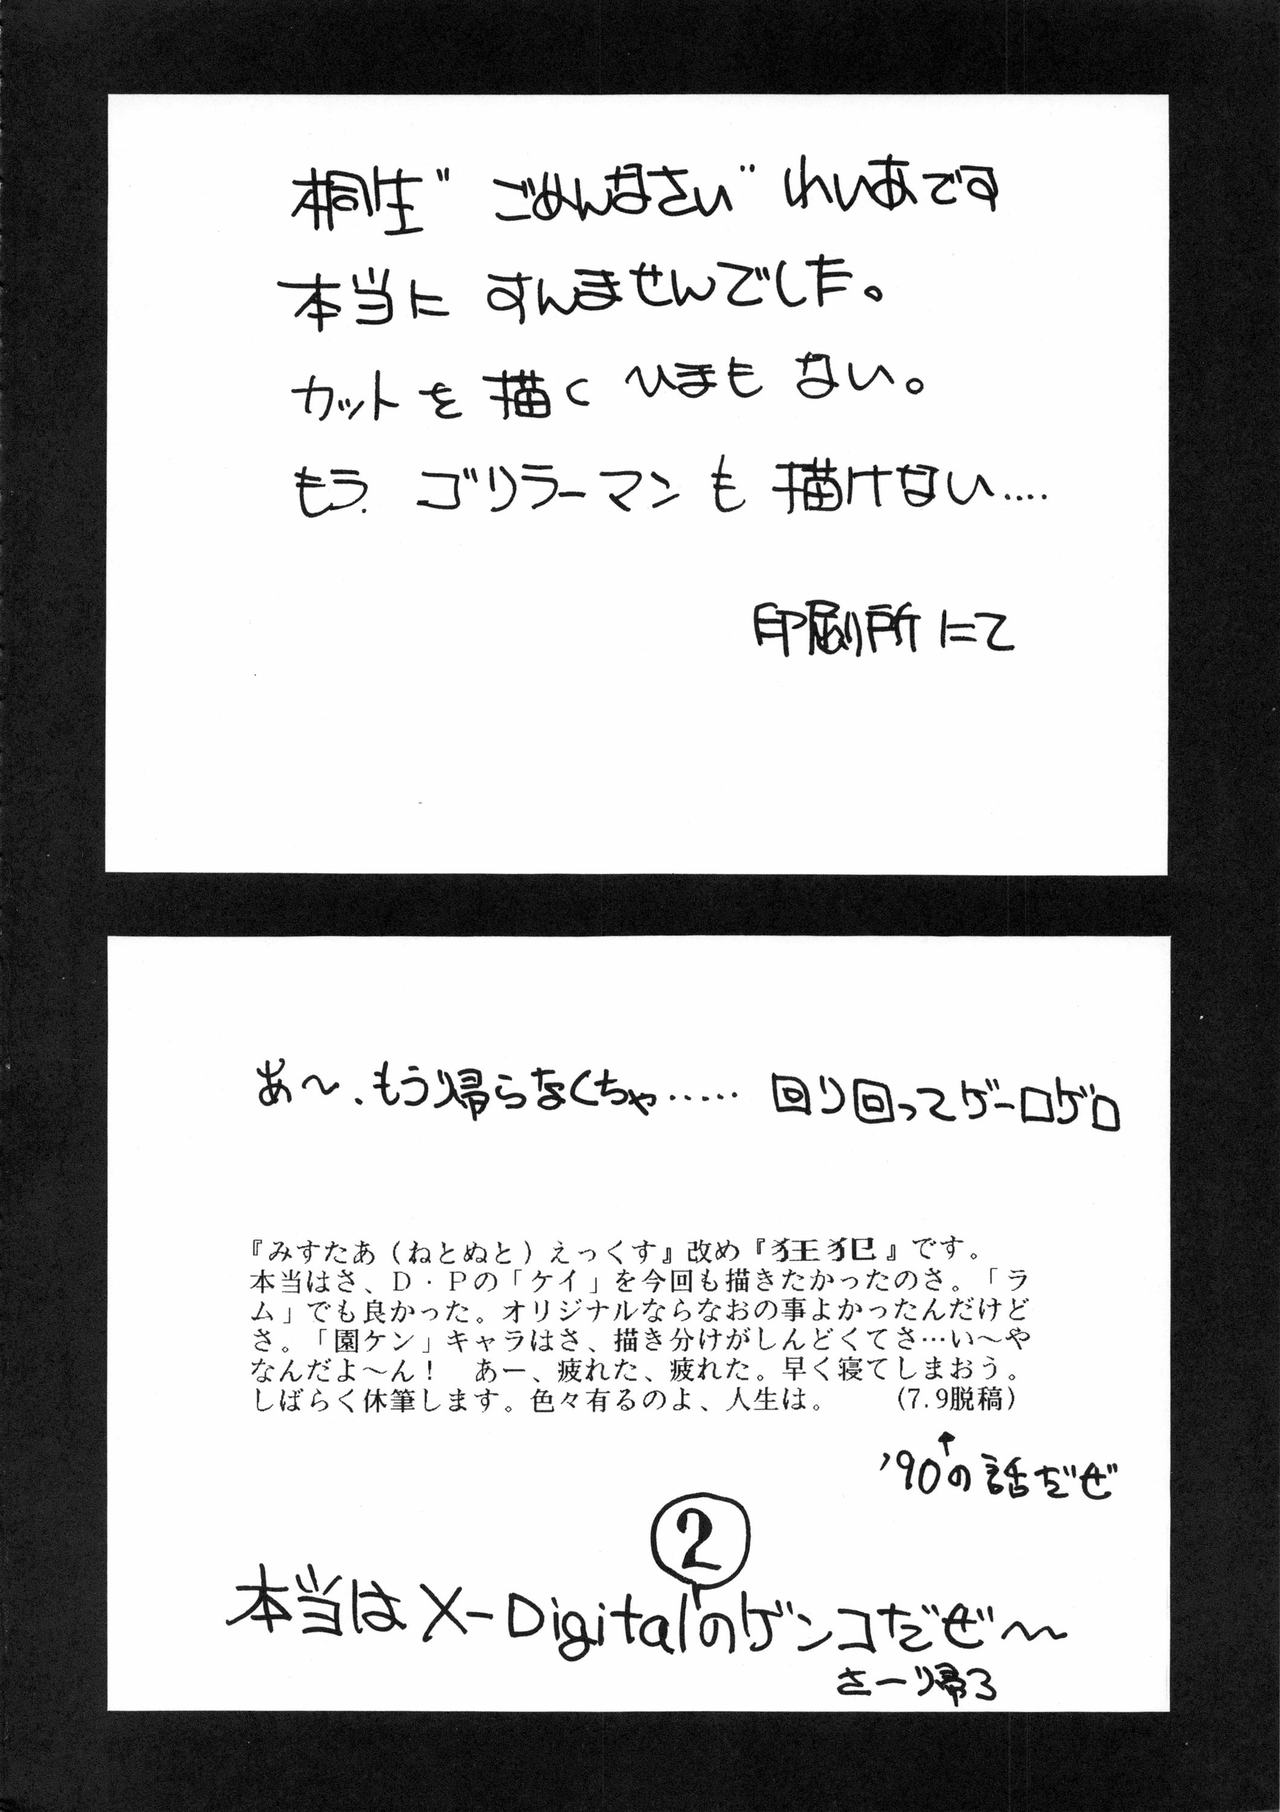 桐生"ごめんなさい"れいあです
本当に すんませんでした。
カットを描く ひまも ない。
もう. ゴリラーマンも 描けない....
印刷所にて
あ〜、もう帰らなくちゃ..... 回り回ってゲーロゲロ
『みすたあ（ねとぬと）えっくす』改め『狂犯』です。
本当はさ、D・Pの「ケイ」を今回も描きたかったのさ。「ラ
ム」でも良かった。オリジナルならなおの事よかったんだけど
さ。「園ケン」キャラはさ、描き分けがしんどくてさ…い〜や
なんだよ〜ん！　あー、疲れた、疲れた。早く寝てしまおう。
しばらく休筆します。色々有るのよ、人生は。　（7.9脱稿）
↑
'90の話だぜ
②
本当は X-Digitalのゲンコだぜ〜
さーり帰ろ